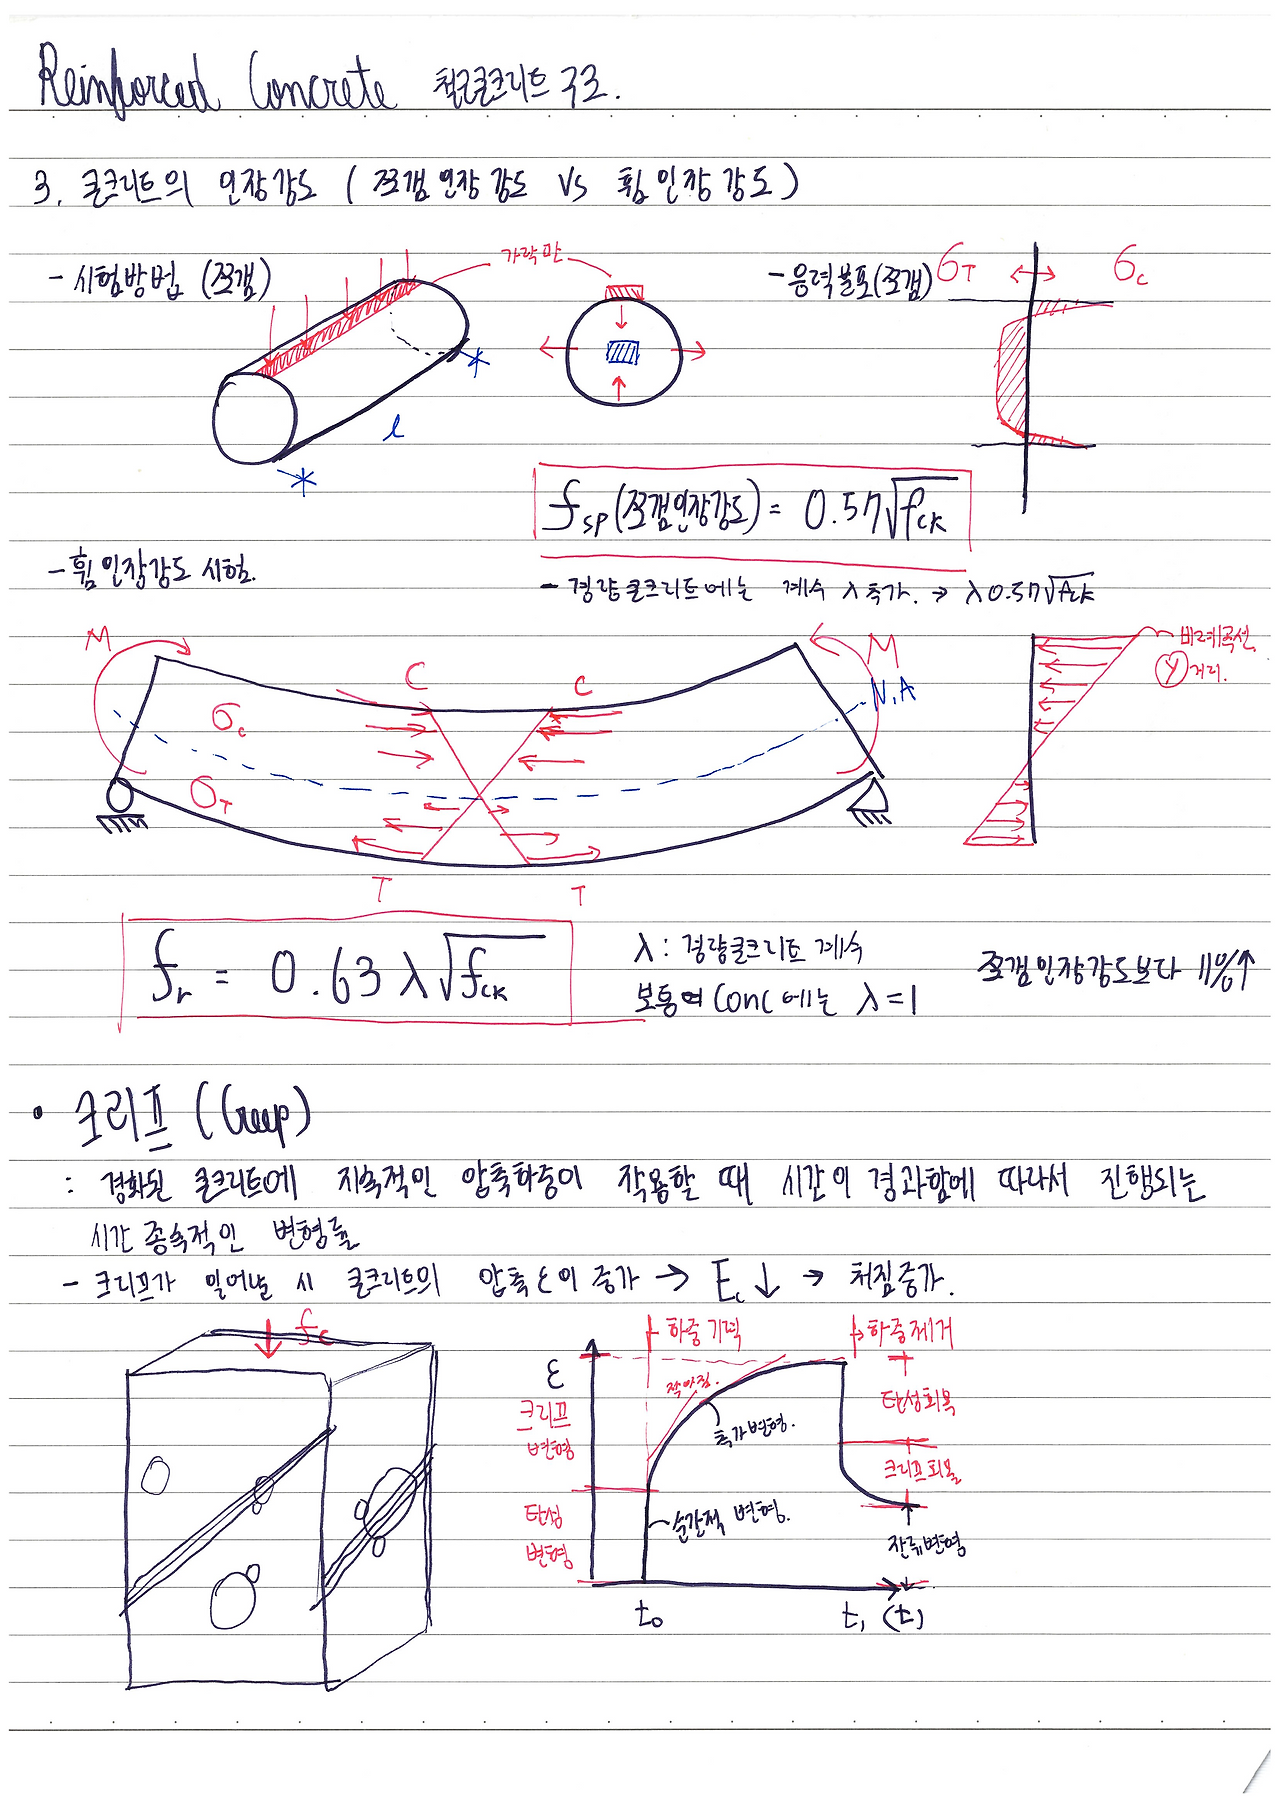 Reinforced Concrete 철근콘크리트 구조.
3. 콘크리트의 인장강도 ( 쪼갬 인장 강도 vs 휨 인장 강도 )
- 시험방법 (쪼갬)
가력판
- 응력분포(쪼갬)
σT
σc
l
fsp (쪼갬인장강도) = 0.57√fck
- 휨 인장강도 시험.
- 경량콘크리트에는 계수 λ 추가. → λ0.57√fck
M
C
C
M
N.A
σc
σT
T
T
비례곡선.
y 거리.
fr = 0.63 λ √fck
λ : 경량콘크리트 계수
보통의 Conc에는 λ=1
쪼갬인장강도보다 11%↑
• 크리프 (Creep)
: 경화된 콘크리트에 지속적인 압축하중이 작용할 때 시간이 경과함에 따라서 진행되는
시간 종속적인 변형률
- 크리프가 일어날 시 콘크리트의 압축 ε이 증가 → Ec ↓ → 처짐증가.
fc
하중 가력
하중제거
ε
크리프
변형
탄성
변형
작아짐.
추가변형.
순간적 변형.
탄성회복
크리프회복
잔류변형
t₀
t₁
(t)